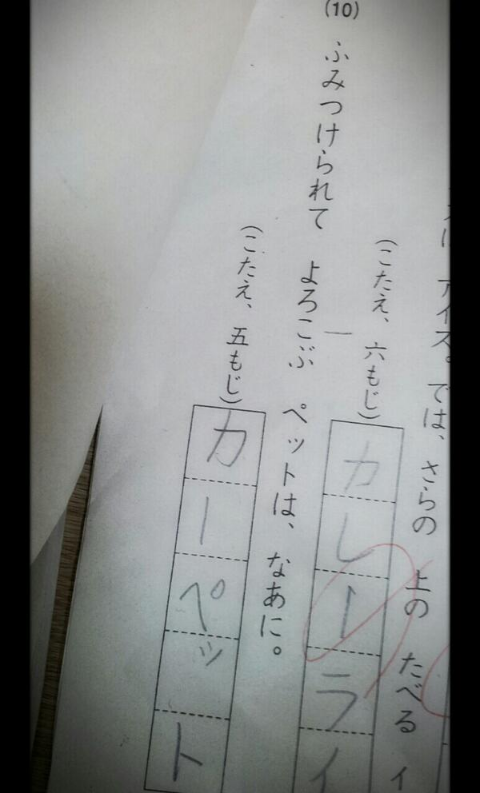 アイス。では、さらの 上の たべる イ
(こたえ、六もじ)
カレーライ
(10) ふみつけられて よろこぶ ペットは、なあに。
(こたえ、五もじ)
カーペット